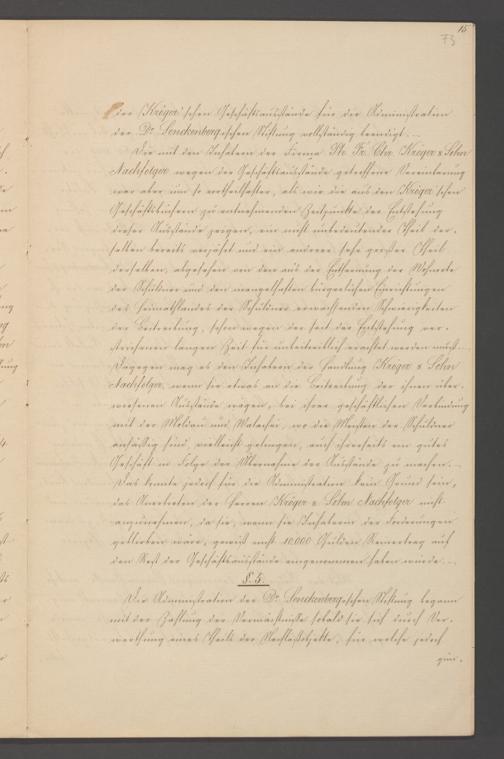 15
73
der Kröger'schen Geschäftsausstände für die Administration
der Dr. Senckenbergischen Stiftung vollständig beendigt. –
Die mit den Inhabern der Firma Kröger & Sohn
Nachfolger wegen der Geschäftsausstände getroffene Vereinbarung
war aber um so vortheilhafter, als wie die aus den Kröger'schen
Geschäftsbüchern zu entnehmenden Zeitpunkte der Entstehung
dieser Ausstände zeigen, ein nicht unbedeutender Theil der-
selben bereits verjährt und ein anderer sehr grosser Theil
derselben, abgesehen von den aus der Entfernung der Wohnorte
der Schuldner und den mangelhaften bürgerlichen Einrichtungen
des Heimathlandes der Schuldner erwachsenden Schwierigkeiten
der Beitreibung, schon wegen der seit der Entstehung ver-
strichenen langen Zeit für unbeitreiblich erachtet werden mußte. –
Dagegen mag es den Inhabern der Handlung Kröger & Sohn
Nachfolger, wenn sie etwas an die Beitreibung der ihnen über-
wiesenen Ausstände wagen, bei ihrer geschäftlichen Verbindung
mit der Moldau und Walachei, wo die Meisten der Schuldner
ansässig sind, vielleicht gelingen, auch ihrerseits ein gutes
Geschäft in Folge der Übernahme der Ausstände zu machen. –
Das konnte jedoch für die Administration kein Grund sein,
das Anerbieten der Herren Kröger & Sohn Nachfolger nicht
anzunehmen, da sie, wenn sie Inhaberin der Forderungen
geblieben wäre, gewiß nicht 10.000 Gulden Reinertrag auf
den Rest der Geschäftsausstände eingenommen haben würde. –
§. 5.
Die Administration der Dr. Senckenbergischen Stiftung begann
mit der Zahlung der Vermächtnisse sobald sie sich durch Ver-
werthung eines Theils der Nachlaßobjekte, für welche jedoch